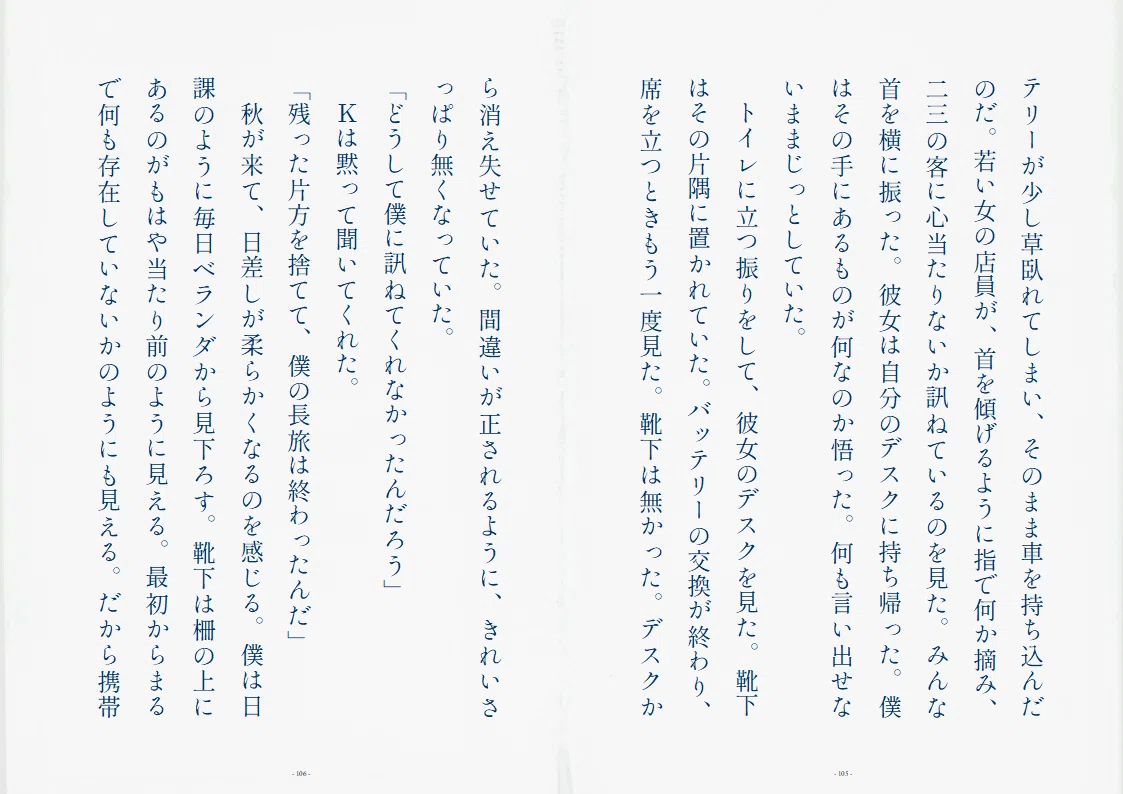 テリーが少し草臥れてしまい、そのまま車を持ち込んだ
のだ。若い女の店員が、首を傾げるように指で何か摘み、
二三の客に心当たりないか訊ねているのを見た。みんな
首を横に振った。彼女は自分のデスクに持ち帰った。僕
はその手にあるものが何なのか悟った。何も言い出せな
いままじっとしていた。
トイレに立つ振りをして、彼女のデスクを見た。靴下
はその片隅に置かれていた。バッテリーの交換が終わり、
席を立つときもう一度見た。靴下は無かった。デスクか
- 105 -
ら消え失せていた。間違いが正されるように、きれいさ
っぱり無くなっていた。
「どうして僕に訊ねてくれなかったんだろう」
Kは黙って聞いてくれた。
「残った片方を捨てて、僕の長旅は終わったんだ」
秋が来て、日差しが柔らかくなるのを感じる。僕は日
課のように毎日ベランダから見下ろす。靴下は柵の上に
あるのがもはや当たり前のように見える。最初からまる
で何も存在していないかのようにも見える。だから携帯
- 106 -